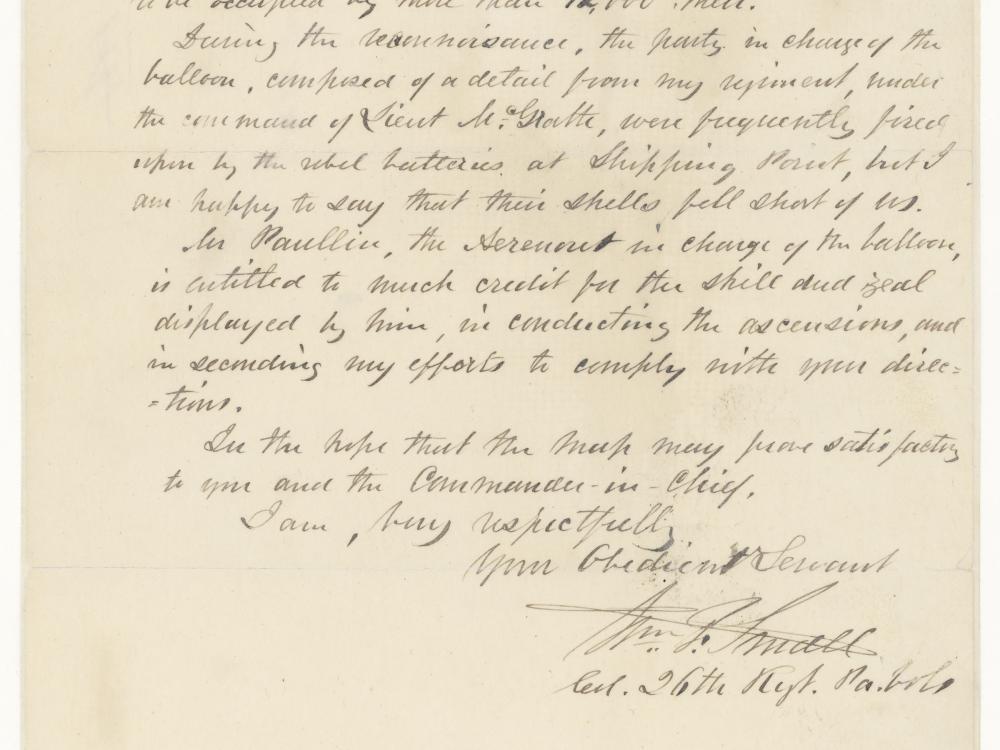 to be occupied by more than 12,000 men.
During the reconnoisance, the party in charge of the
balloon, composed of a detail from my regiment, under
the command of Lieut Mc.Grath, were frequently fired
upon by the rebel batteries at Shipping Point, but I
am happy to say that their shells fell short of us.
Mr Paullin, the Aeronaut in charge of the balloon,
is entitled to much credit for the skill and zeal
displayed by him, in conducting the ascensions, and
in seconding my efforts to comply with your direc=
=tions.
In the hope that the map may prove satisfactory
to you and the Commander-in-Chief,
I am, very respectfully
Your Obedient Servant
Wm. F. Small
Col. 26th Regt. Pa. Vols